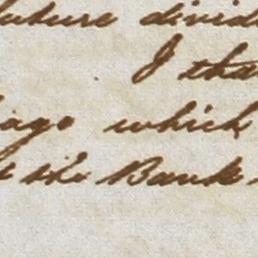 future divid
I tha
ago which
the Bank